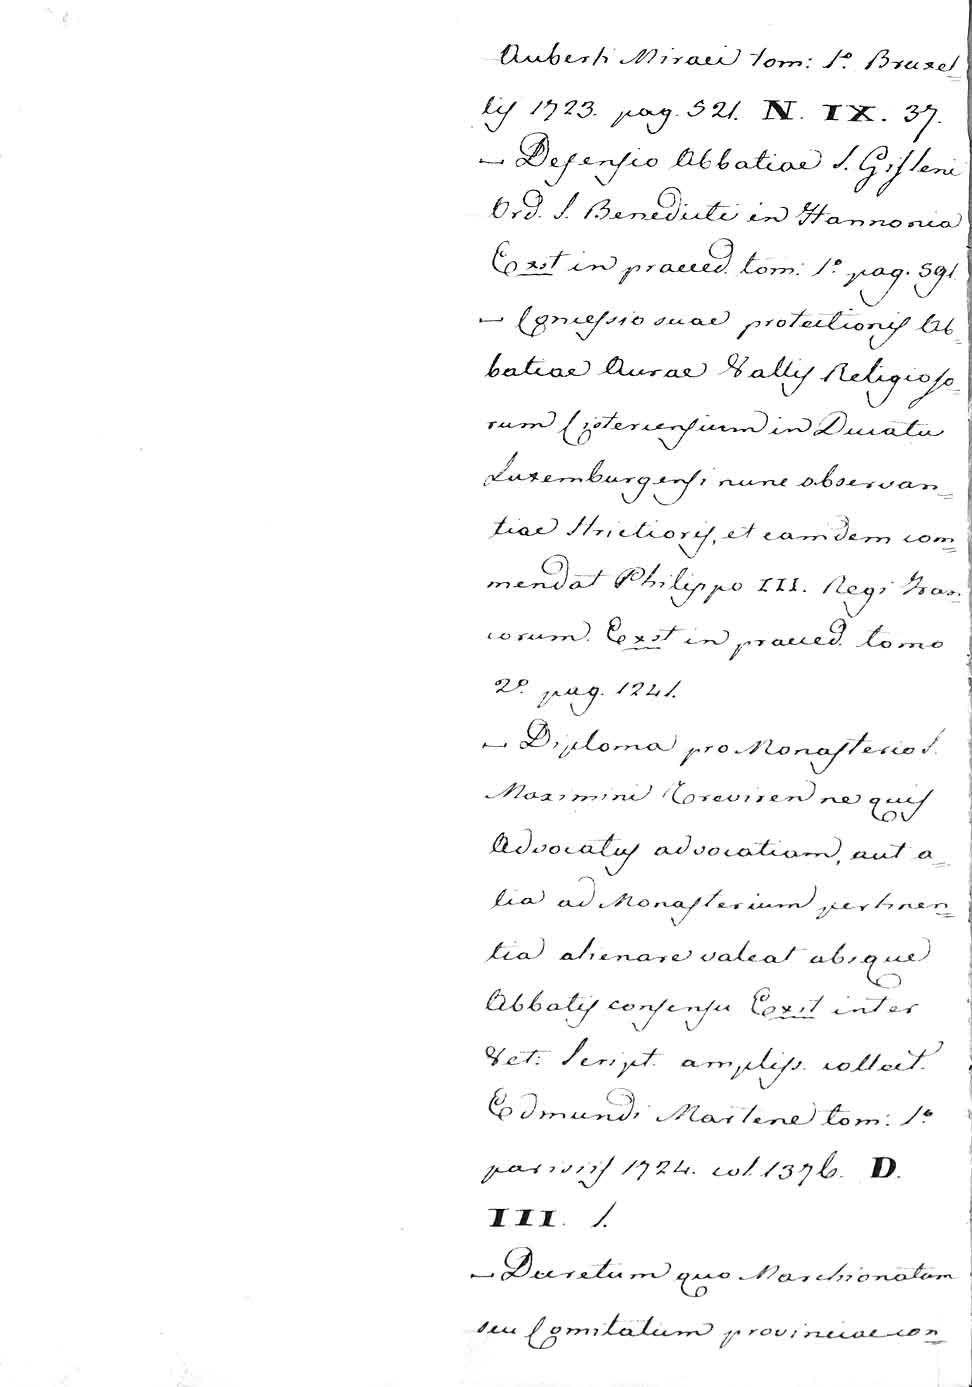 Auberti Miraei tom: 1.º Bruxel=
lis 1723. pag. 521. N. IX. 37.
— Defensio Abbatiae S. Gisleni
Ord. S. Benedicti in Hannonia
Exst in praeced. tom: 1.º pag. 591.
— Concessio suae protectionis Ab=
batiae Aurae Vallis Religioso=
rum Cisterciensium in Ducatu
Luxemburgensi nunc observan=
tiae strictioris, et eamdem com=
mendat Philippo III. Regi Fran=
corum. Exst in praeced. tomo
2.º pag. 1241.
— Diploma pro Monasterio S.
Maximini Treviren ne quis
Advocatus advocatiam, aut a=
lia ad Monasterium pertinen=
tia alienare valeat absque
Abbatis consensu Exst inter
Vet: Script. ampliss. collect.
Edmundi Martene tom: 1.º
parisiis 1724. col. 1376. D.
III. 1.
— Decretum quo Marchionatum
seu Comitatum provinciae con=